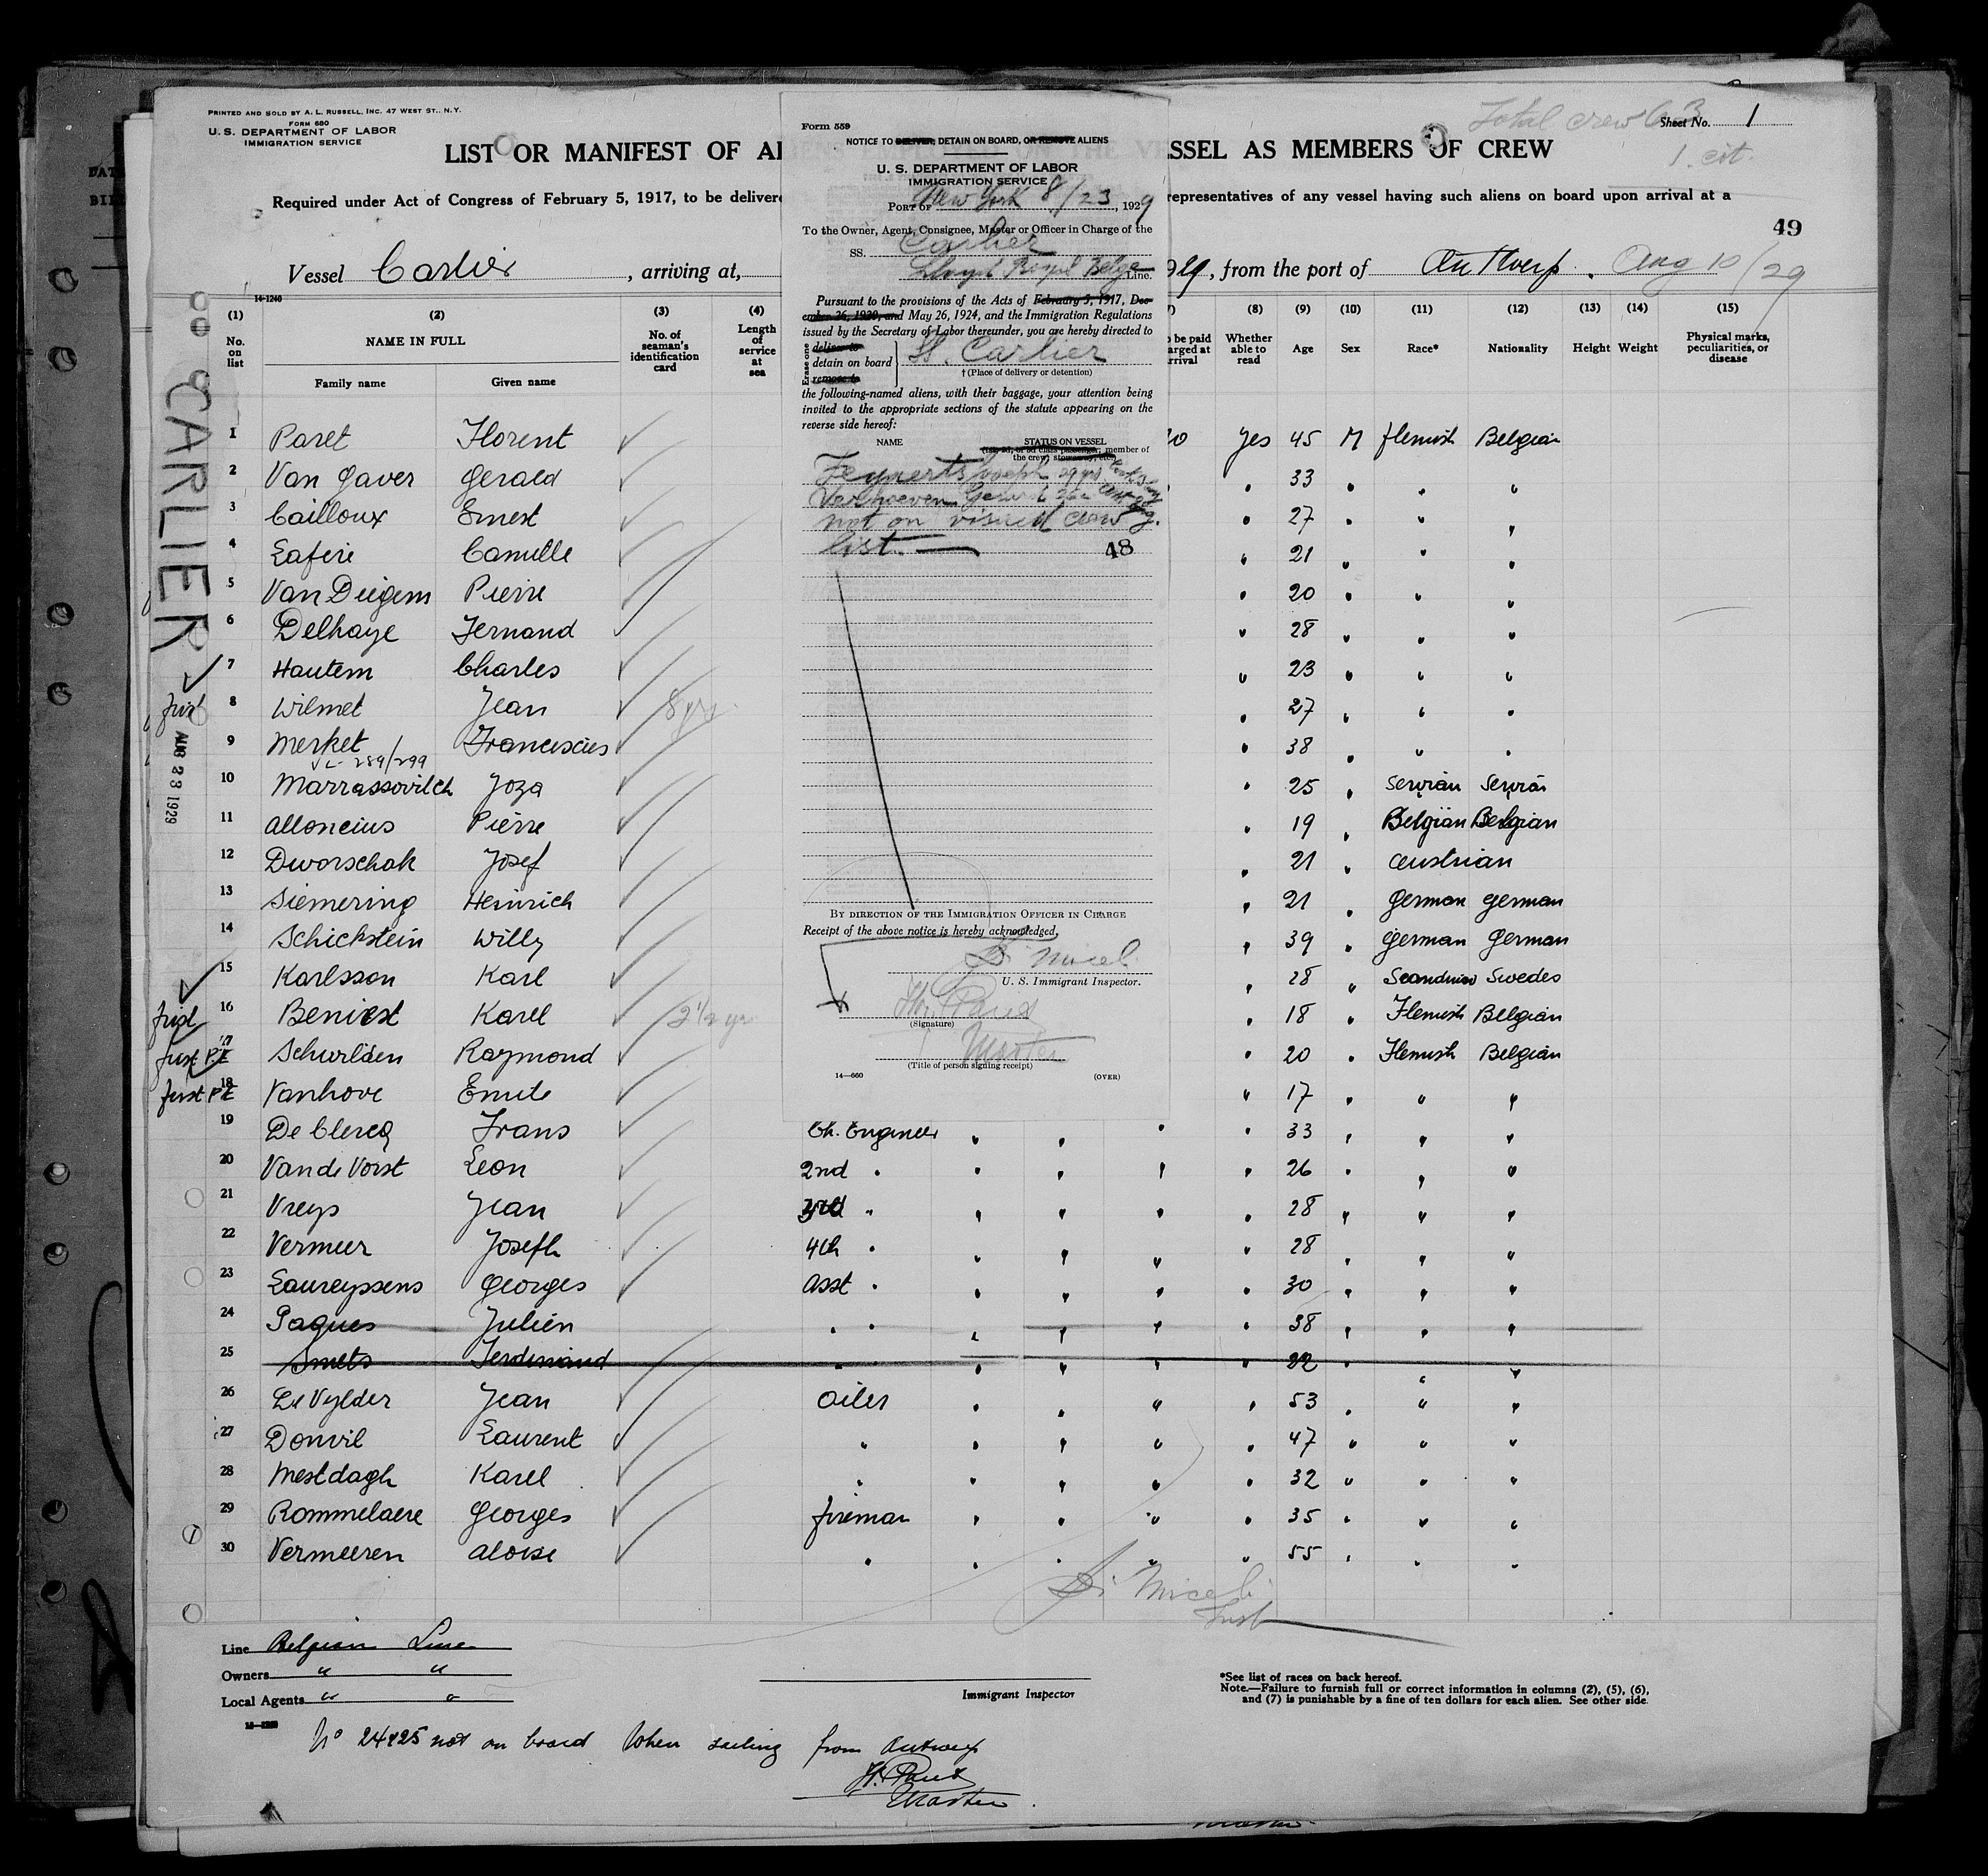 PRINTED AND SOLD BY A. L. RUSSELL, INC. 47 WEST ST., N.Y.
FORM 680
U. S. DEPARTMENT OF LABOR
IMMIGRATION SERVICE
Total crew 63
Sheet No. 1
1 cit.
LIST OR MANIFEST OF AL
SSEL AS MEMBERS OF CREW
Required under Act of Congress of February 5, 1917, to be delivere
representatives of any vessel having such aliens on board upon arrival at a
49
Vessel Carlier, arriving at,
29, from the port of Antwerp. Aug 10/29
14-1240
(1) (2) (3) (4)
No. on list
NAME IN FULL
Family name Given name
No. of seaman's identification card
Length of service at sea
(8) (9) (10) (11) (12) (13) (14) (15)
Whether able to read
Age Sex Race* Nationality Height Weight
Physical marks, peculiarities, or disease
Form 559
NOTICE TO DELIVER, DETAIN ON BOARD, OR REMOVE ALIENS
U. S. DEPARTMENT OF LABOR
IMMIGRATION SERVICE
PORT OF New York 8/23, 1929
To the Owner, Agent, Consignee, Master or Officer in Charge of the
SS. Carlier
Lloyd Royal Belge Line.
Pursuant to the provisions of the Acts of February 5, 1917, Dec-
ember 26, 1920, and May 26, 1924, and the Immigration Regulations
issued by the Secretary of Labor thereunder, you are hereby directed to
Erase one
deliver to
detain on board
remove to
St. Carlier
† (Place of delivery or detention)
the following-named aliens, with their baggage, your attention being
invited to the appropriate sections of the statute appearing on the
reverse side hereof:
NAME STATUS ON VESSEL
(1st, 2d, or 3d class passenger, member of
the crew, stowaway, etc.)
Feynerts Joseph 29 yrs
Verhoeven Gerard 26
not on visaed crew
list.
48
BY DIRECTION OF THE IMMIGRATION OFFICER IN CHARGE
Receipt of the above notice is hereby acknowledged,
Di Miceli
U. S. Immigrant Inspector.
(Signature)
Master
(Title of person signing receipt)
14—660
(OVER)
CARLIER
AUG 23 1929
1 Paret Florent Yes 45 M Flemish Belgian
2 Van Gaver Gerald " 33 " " "
3 Cailloux Ernest " 27 " " "
4 Lafere Camille " 21 " " "
5 Van Diegem Pierre " 20 " " "
6 Delhaye Fernand " 28 " " "
7 Hautem Charles " 23 " " "
first 8 Wilmet Jean 8 yrs. " 27 " " "
9 Merket Franciscus " 38 " " "
289/299
10 Marrassovitch Joza " 25 " Servian Servian
11 Alloncius Pierre " 19 " Belgian Belgian
12 Dworschak Josef " 21 " Austrian
13 Siemering Heinrich " 21 " German German
14 Schickstein Willy " 39 " German German
15 Karlsson Karl " 28 " Swedes
first 16 Beniest Karel 2½ yrs " 18 " Flemish Belgian
first P.E 17 Schurlden Raymond " 20 " Flemish Belgian
first P.E 18 Vanhove Emile " 17 " " "
19 De Clercq Frans Ch. Engineer " " " " 33 " " "
20 Van de Vorst Leon 2nd " " " " " 26 " " "
21 Vreys Jean 3rd " " " " " 28 " " "
22 Vermeer Joseph 4th " " " " " 28 " " "
23 Laureyssens Georges Asst " " " " " 30 " " "
24 Paques Julien " " " " " " 38 " " "
25 Smets Ferdinand " " " " " " 22 " " "
26 De Vylder Jean Oiler " " " " 53 " " "
27 Donvil Laurent " " " " " 47 " " "
28 Mestdagh Karel " " " " " 32 " " "
29 Rommelaere Georges fireman " " " " 35 " " "
30 Vermeeren Aloise " " " " " 55 " " "
Di Miceli
Insp
Line Belgian Line
Owners " "
Local Agents " "
Immigrant Inspector
*See list of races on back hereof.
Note.—Failure to furnish full or correct information in columns (2), (5), (6),
and (7) is punishable by a fine of ten dollars for each alien. See other side.
No 24&25 not on board when sailing from Antwerp
Master